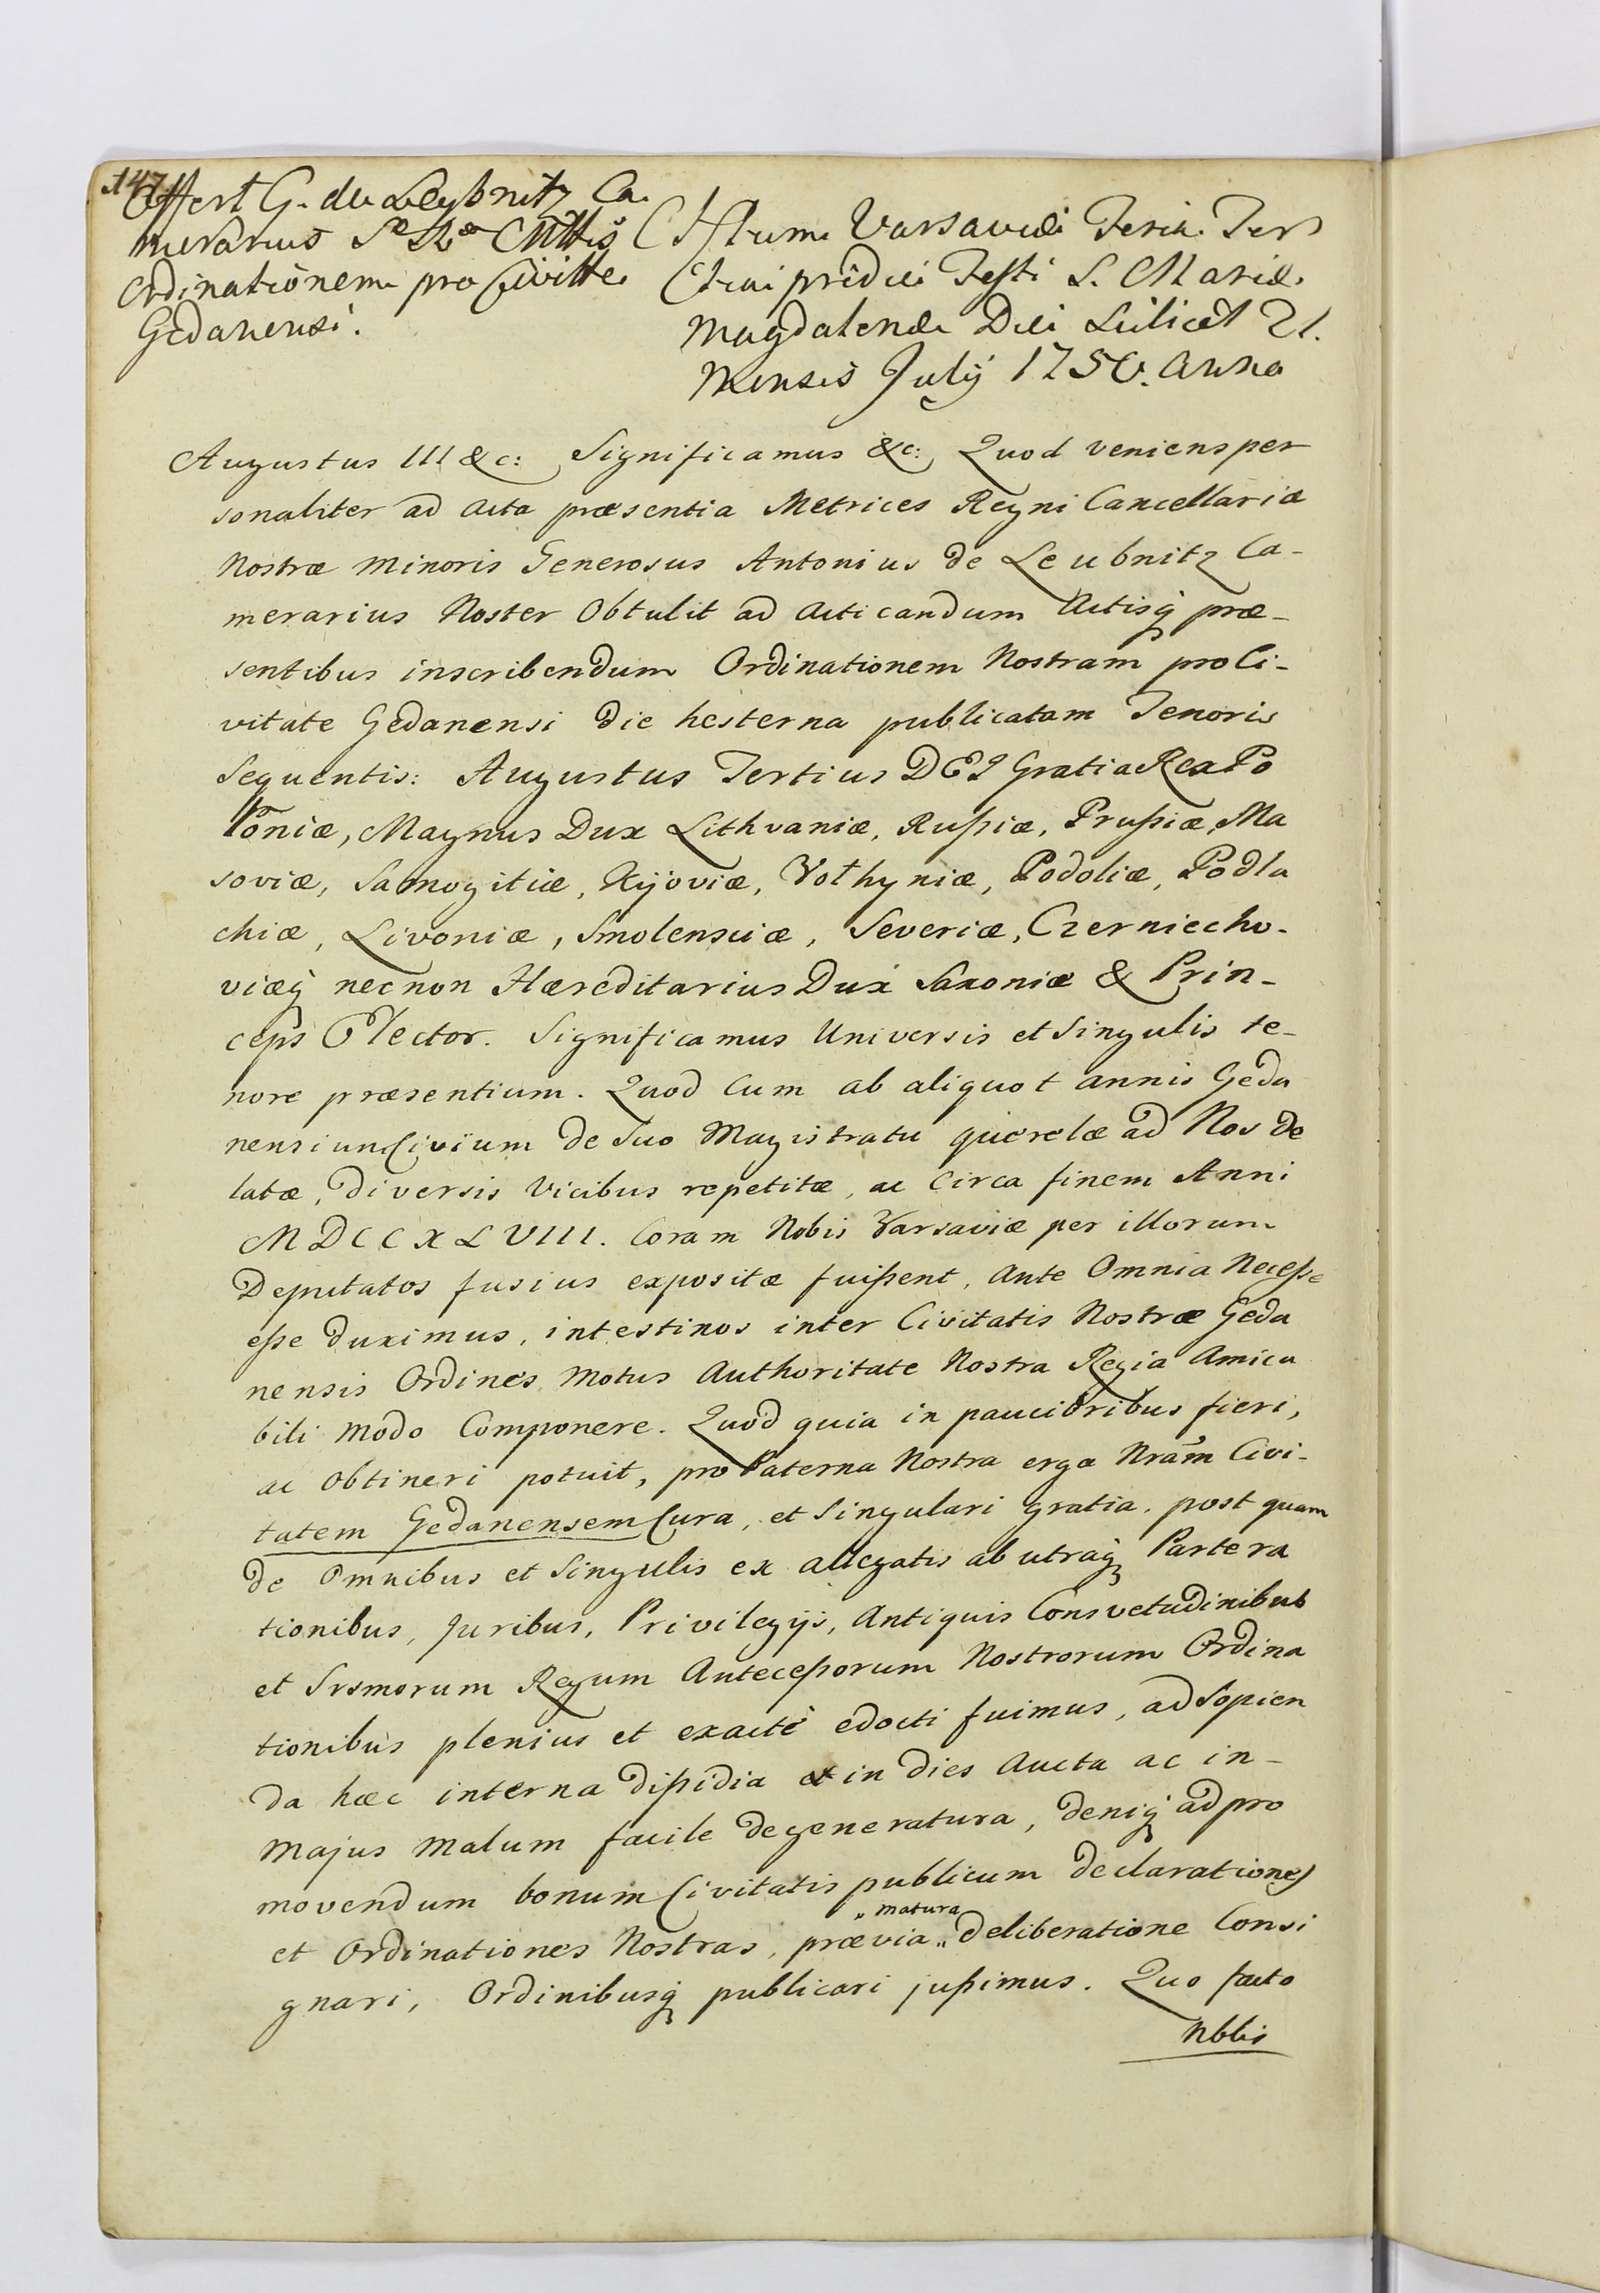 147
Offert G. de Leybnitz Ca
merarius S Rae Mttis
Ordinationem pro Civitte
Gedanensi.
Actum Varsaviæ Feria Ter
tia pridie Festi S. Mariæ
Magdalenæ Die Scilicet 21.
Mensis July 1750. Anno
Augustus III &c: Significamus &c: Quod veniens per
sonaliter ad Acta præsentia Metrices Regni Cancellariæ
Nostræ Minoris Generosus Antonius de Leubnitz Ca-
merarius Noster Obtulit ad Acticandum Actisq præ-
sentibus inscribendum Ordinationem Nostram pro Ci-
vitate Gedanensi die hesterna publicatam Tenoris
Sequentis: Augustus Tertius DEI Gratia Rex Po
loniæ, Magnus Dux Lithvaniæ, Rußiæ, Prußiæ, Ma
soviæ, Samogitiæ, Kijoviæ, Volhyniæ, Podoliæ, Podla
chiæ, Livoniæ, Smolensciæ, Severiæ, Czerniecho-
viæq necnon Hæreditarius Dux Saxoniæ & Prin-
ceps Elector. Significamus Universis et Singulis te-
nore præsentium. Quod Cum ab aliquot annis Geda
nensium Civium de Suo Magistratu querelæ ad Nos de
latæ, diversis Vicibus repetitæ, ac Circa finem Anni
MDCCXLVIII. Coram Nobis Varsaviæ per illorum
Deputatos fusius expositæ fuißent, Ante Omnia Neceße
eße duximus, intestinos inter Civitatis Nostræ Geda
nensis Ordines Motus Authoritate Nostra Regia Amica
bili Modo Componere. Quod quia in paucioribus fieri,
ac Obtineri potuit, pro Paterna Nostra erga Nram Civi-
tatem Gedanensem Cura, et Singulari gratia, post quam
de Omnibus et Singulis ex allegatis ab utraq Parte ra
tionibus, Juribus, Privilegijs, Antiquis Consvetudinibus
et Srsmorum Regum Anteceßorum Nostrorum Ordina
tionibus plenius et exacte edocti fuimus, ad Sopien
da hæc interna dißidia et in dies Aucta ac in-
Majus Malum facile degeneratura, deniq ad pro
movendum bonum Civitatis publicum declarationes
„ matura
et Ordinationes Nostras, prævia „ deliberatione Consi
gnari, Ordinibusq publicari jußimus. Quo facto
Nbbis